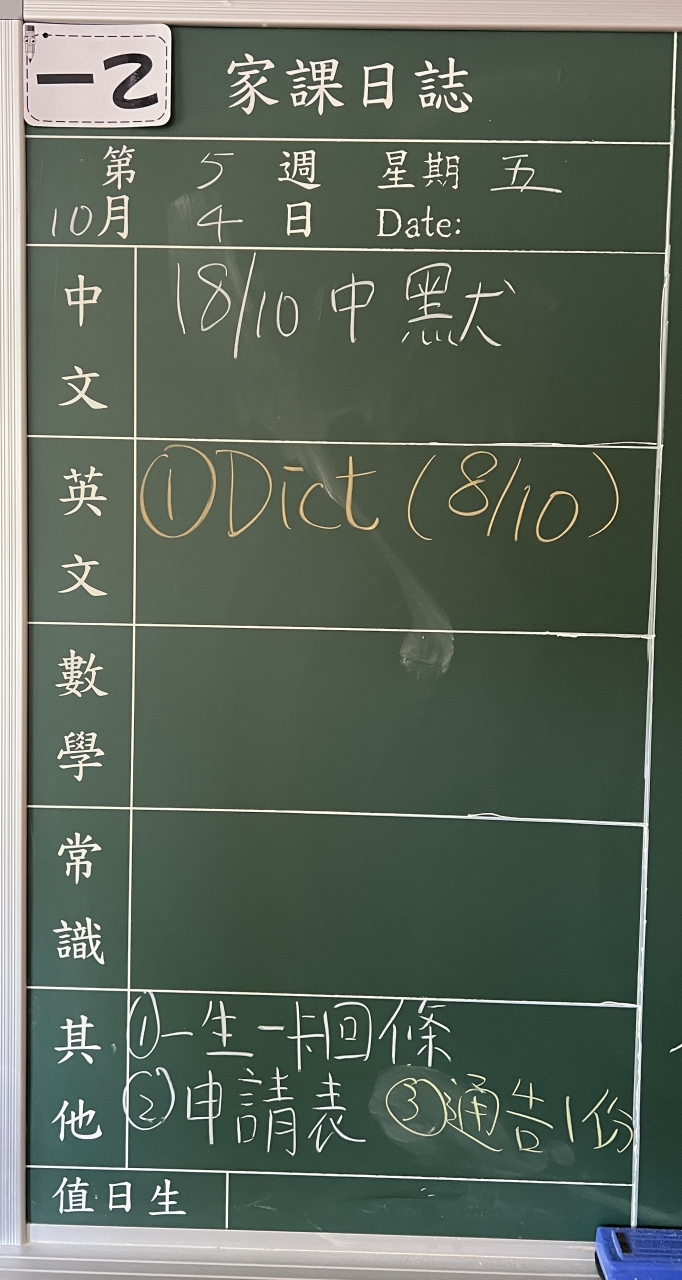 一乙
家課日誌
第 5 週 星期 五
10月 4 日 Date:
中文 18/10 中默
英文 ①Dict (8/10)
數學
常識
其他 ①一生一卡回條
②申請表 ③通告1份
值日生